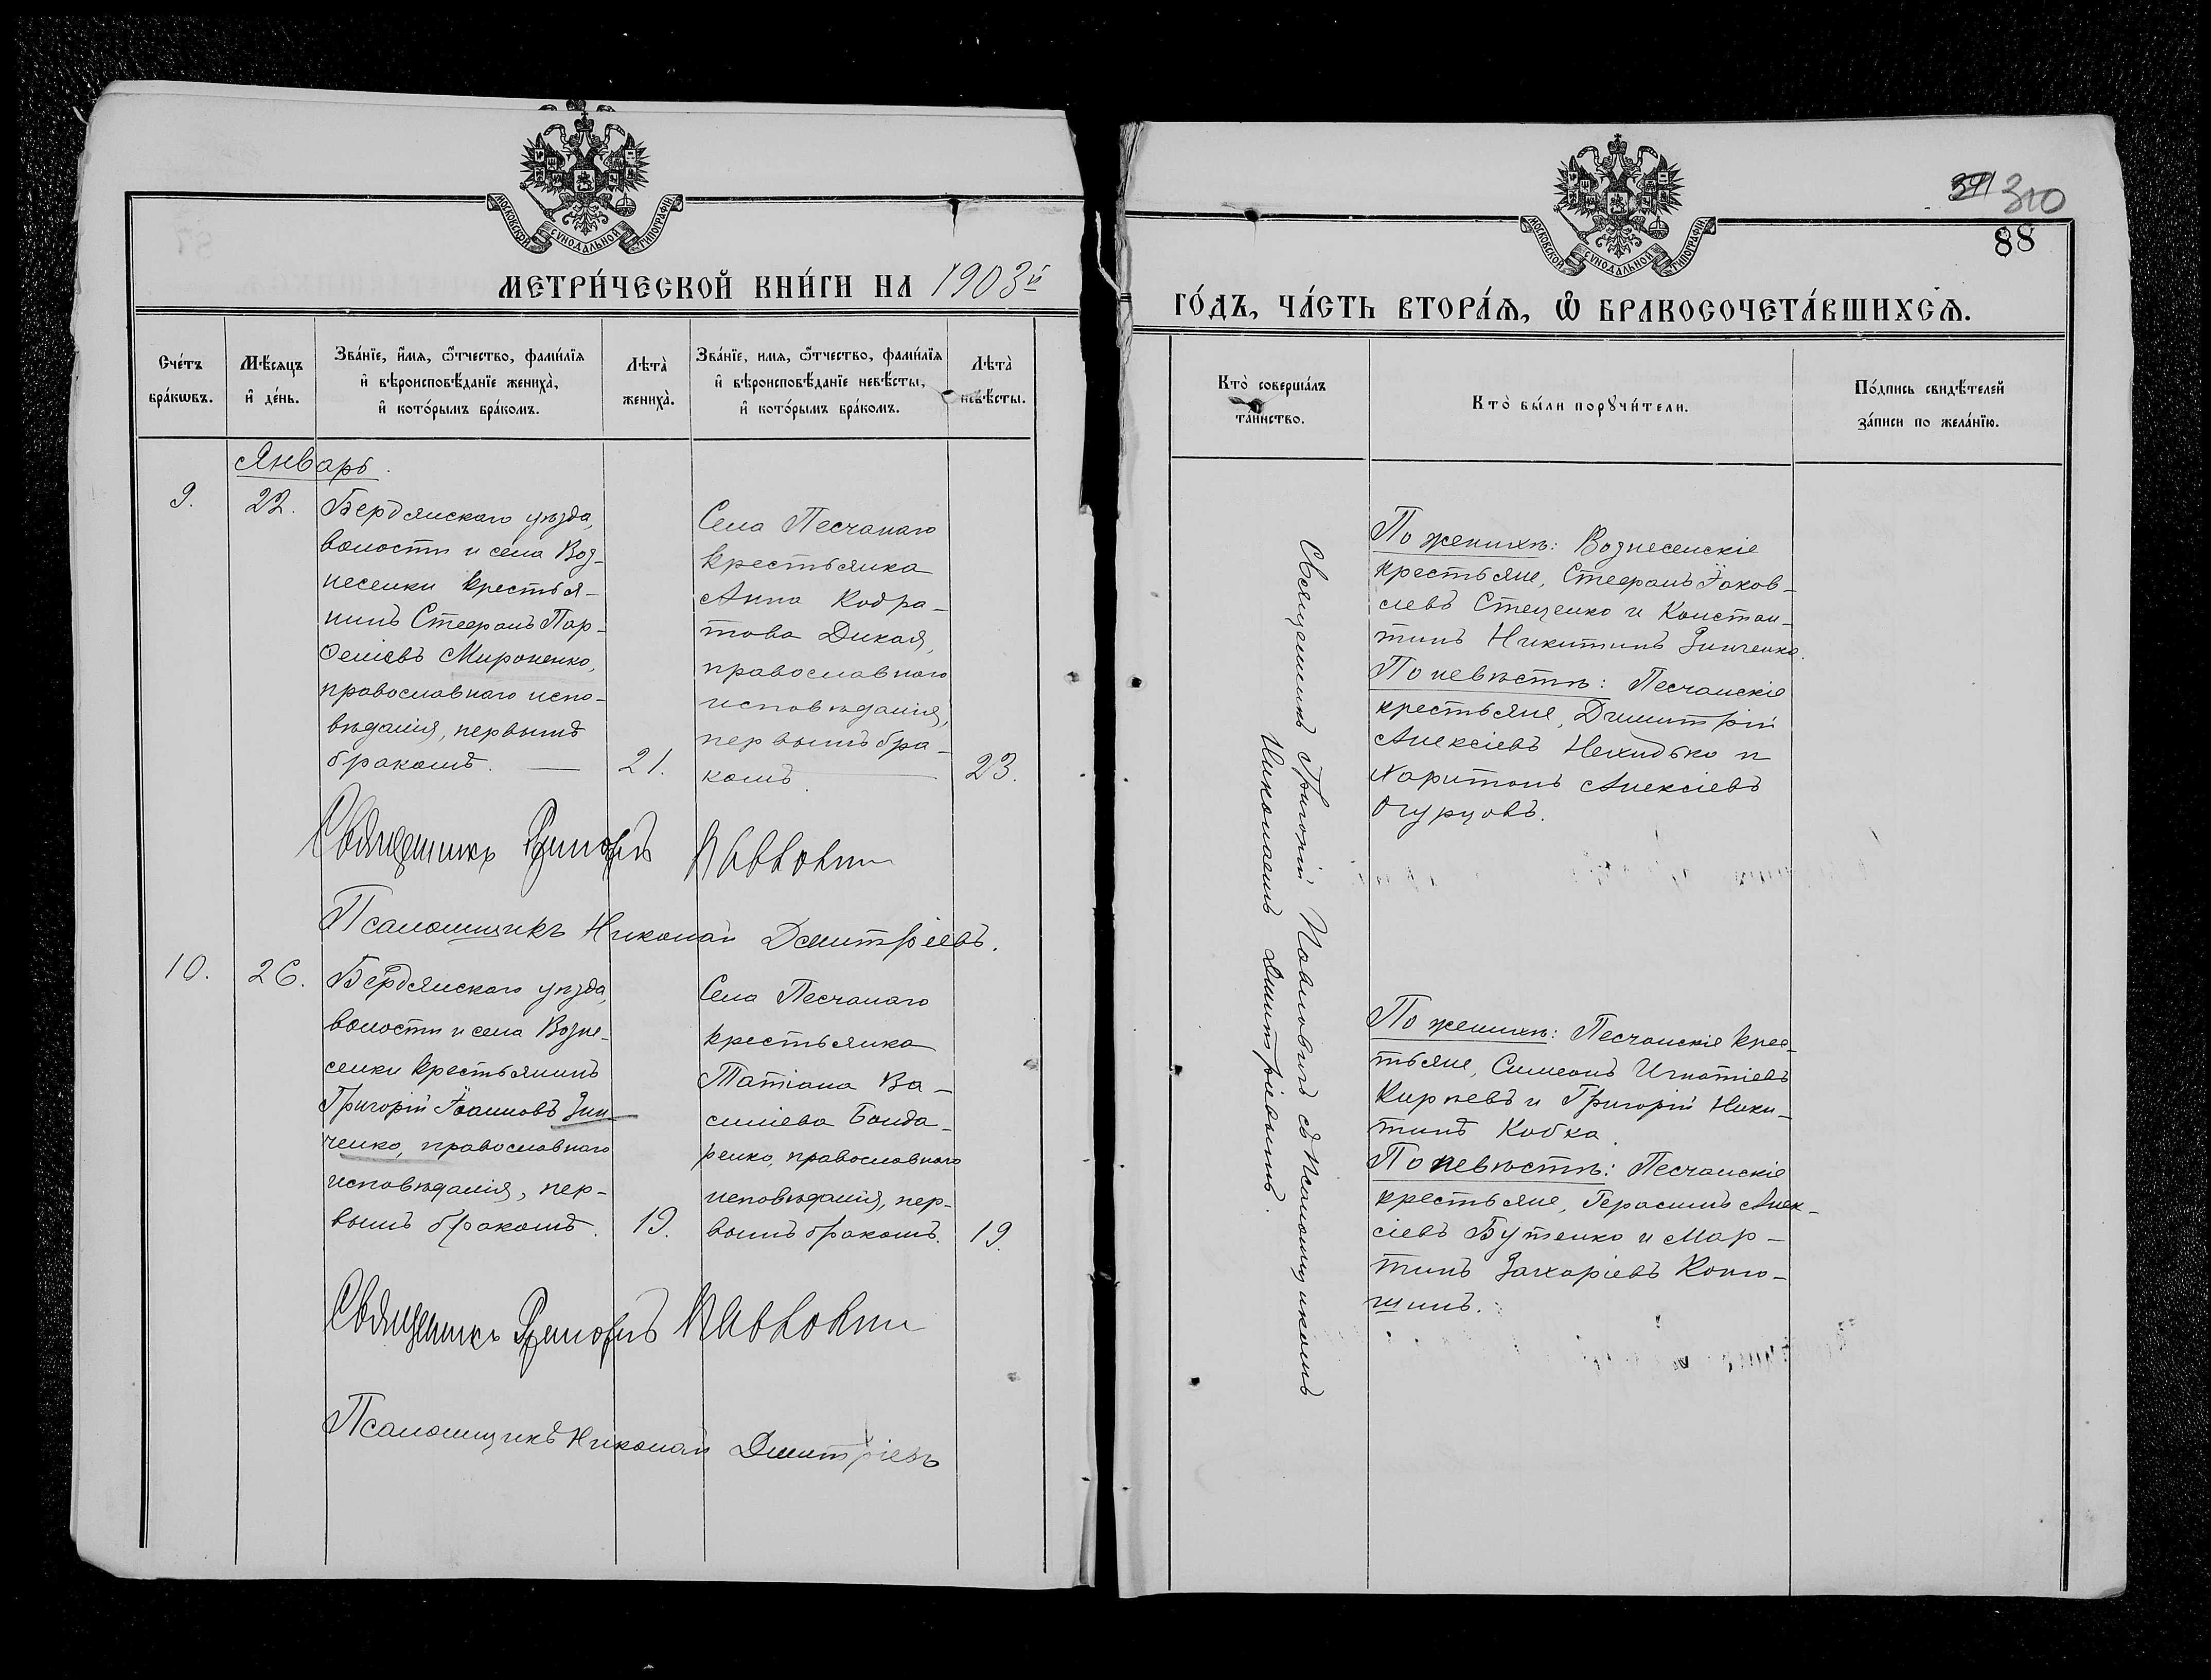 МОСКОВСКОЙ СѴНОДАЛЬНОЙ ТИПОГРАФІИ
МЕТРИ́ЧЕСКОЙ КНИ́ГИ НА 1903й
Сче́тъ
бра́кѡвъ.
Мѣ́сяцъ
и҆ де́нь.
Зва́нїе, и҆́мя, ѻ҆́тчество, фами́лїя
и҆ вѣроисповѣ́данїе жениха̀,
и҆ кото́рымъ бра́комъ.
Лѣта̀
жениха̀.
Зва́нїе, имя, ѻ҆́тчество, фами́лїя
и҆ вѣроисповѣ́данїе невѣ́сты,
и҆ кото́рымъ бра́комъ.
Лѣта̀
невѣ́сты.
Январь.
9.
22.
Бердянскаго уѣзда,
волости и села Воз-
несенки крестья-
нинъ Стефанъ Пар-
ѳеніевъ Мироненко,
православнаго испо-
вѣданія, первымъ
бракомъ.
21.
Села Песчанаго
крестьянка
Анна Кодра-
това Дикая,
православнаго
исповѣданія,
первымъ бра-
комъ.
23.
Священникъ Григорій Павловичъ
Псаломщикъ Николай Дмитріевъ.
10.
26.
Бердянскаго уѣзда,
волости и села Возне-
сенки крестьянинъ
Григорій Іоанновъ Зин-
ченко, православнаго
исповѣданія, пер-
вымъ бракомъ.
19.
Села Песчанаго
крестьянка
Татіана Ва-
силіева Бонда-
ренко, православнаго
исповѣданія, пер-
вымъ бракомъ.
19.
Священникъ Григорій Павловичъ
Псаломщикъ Николай Дмитріевъ
310
88
МОСКОВСКОЙ СѴНОДАЛЬНОЙ ТИПОГРАФІИ
ГО́ДЪ, ЧА́СТЬ ВТОРА́Я, Ѡ҆ БРАКОСОЧЕТА́ВШИХСЯ.
Кто̀ соверша́лъ
та́инство.
Кто̀ бы́ли порꙋчи́тели.
По́дпись свидѣ́телей
за́писи по жела́нїю.
Священникъ Григорій Павловичъ съ псаломщикомъ
Николаемъ Дмитріевымъ.
По женихѣ: Вознесенскіе
крестьяне, Стефанъ Іаков-
левъ Стеценко и Констан-
тинъ Никитинъ Зинченко.
По невѣстѣ: Песчанскіе
крестьяне, Димитрій
Алексіевъ Нехидько и
Харитонъ Алексіевъ
Огурцовъ.
По женихѣ: Песчанскіе крес-
тьяне, Симеонъ Игнатіевъ
Кирѣевъ и Григорій Ники-
тинъ Кобха.
По невѣстѣ: Песчанскіе
крестьяне, Герасимъ Алек-
сіевъ Бутенко и Мар-
тинъ Захаріевъ Коню-
шинъ.